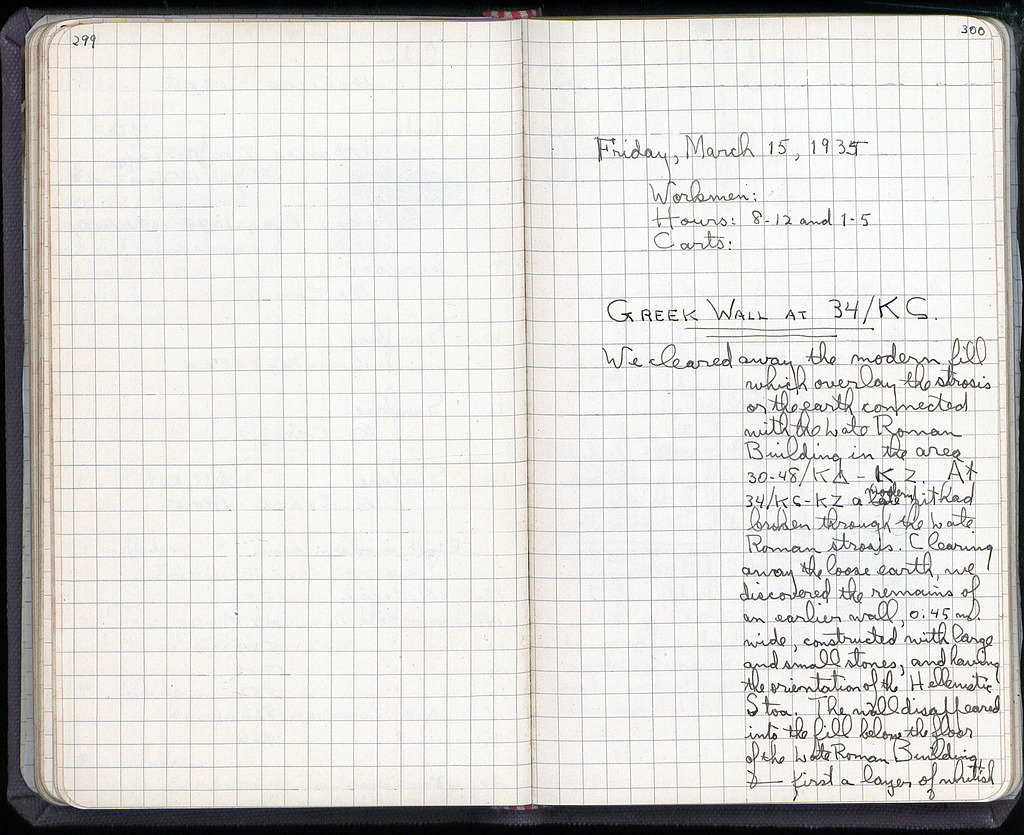 299
300
Friday, March 15, 1935
Workmen:
Hours: 8-12 and 1-5
Carts:
GREEK WALL AT 34/ΚϚ.
We cleared away the modern fill
which overlay the strosis
or the earth connected
with the Late Roman
Building in the area
30-48/ΚΔ - ΚΖ. At
34/ΚϚ-ΚΖ a modern pit had
broken through the Late
Roman strosis. Clearing
away the loose earth, we
discovered the remains of
an earlier wall, 0.45 m.
wide, constructed with large
and small stones, and having
the orientation of the Hellenistic
Stoa. The wall disappeared
into the fill below the floor
of the Late Roman Building,
first a layer of whitish